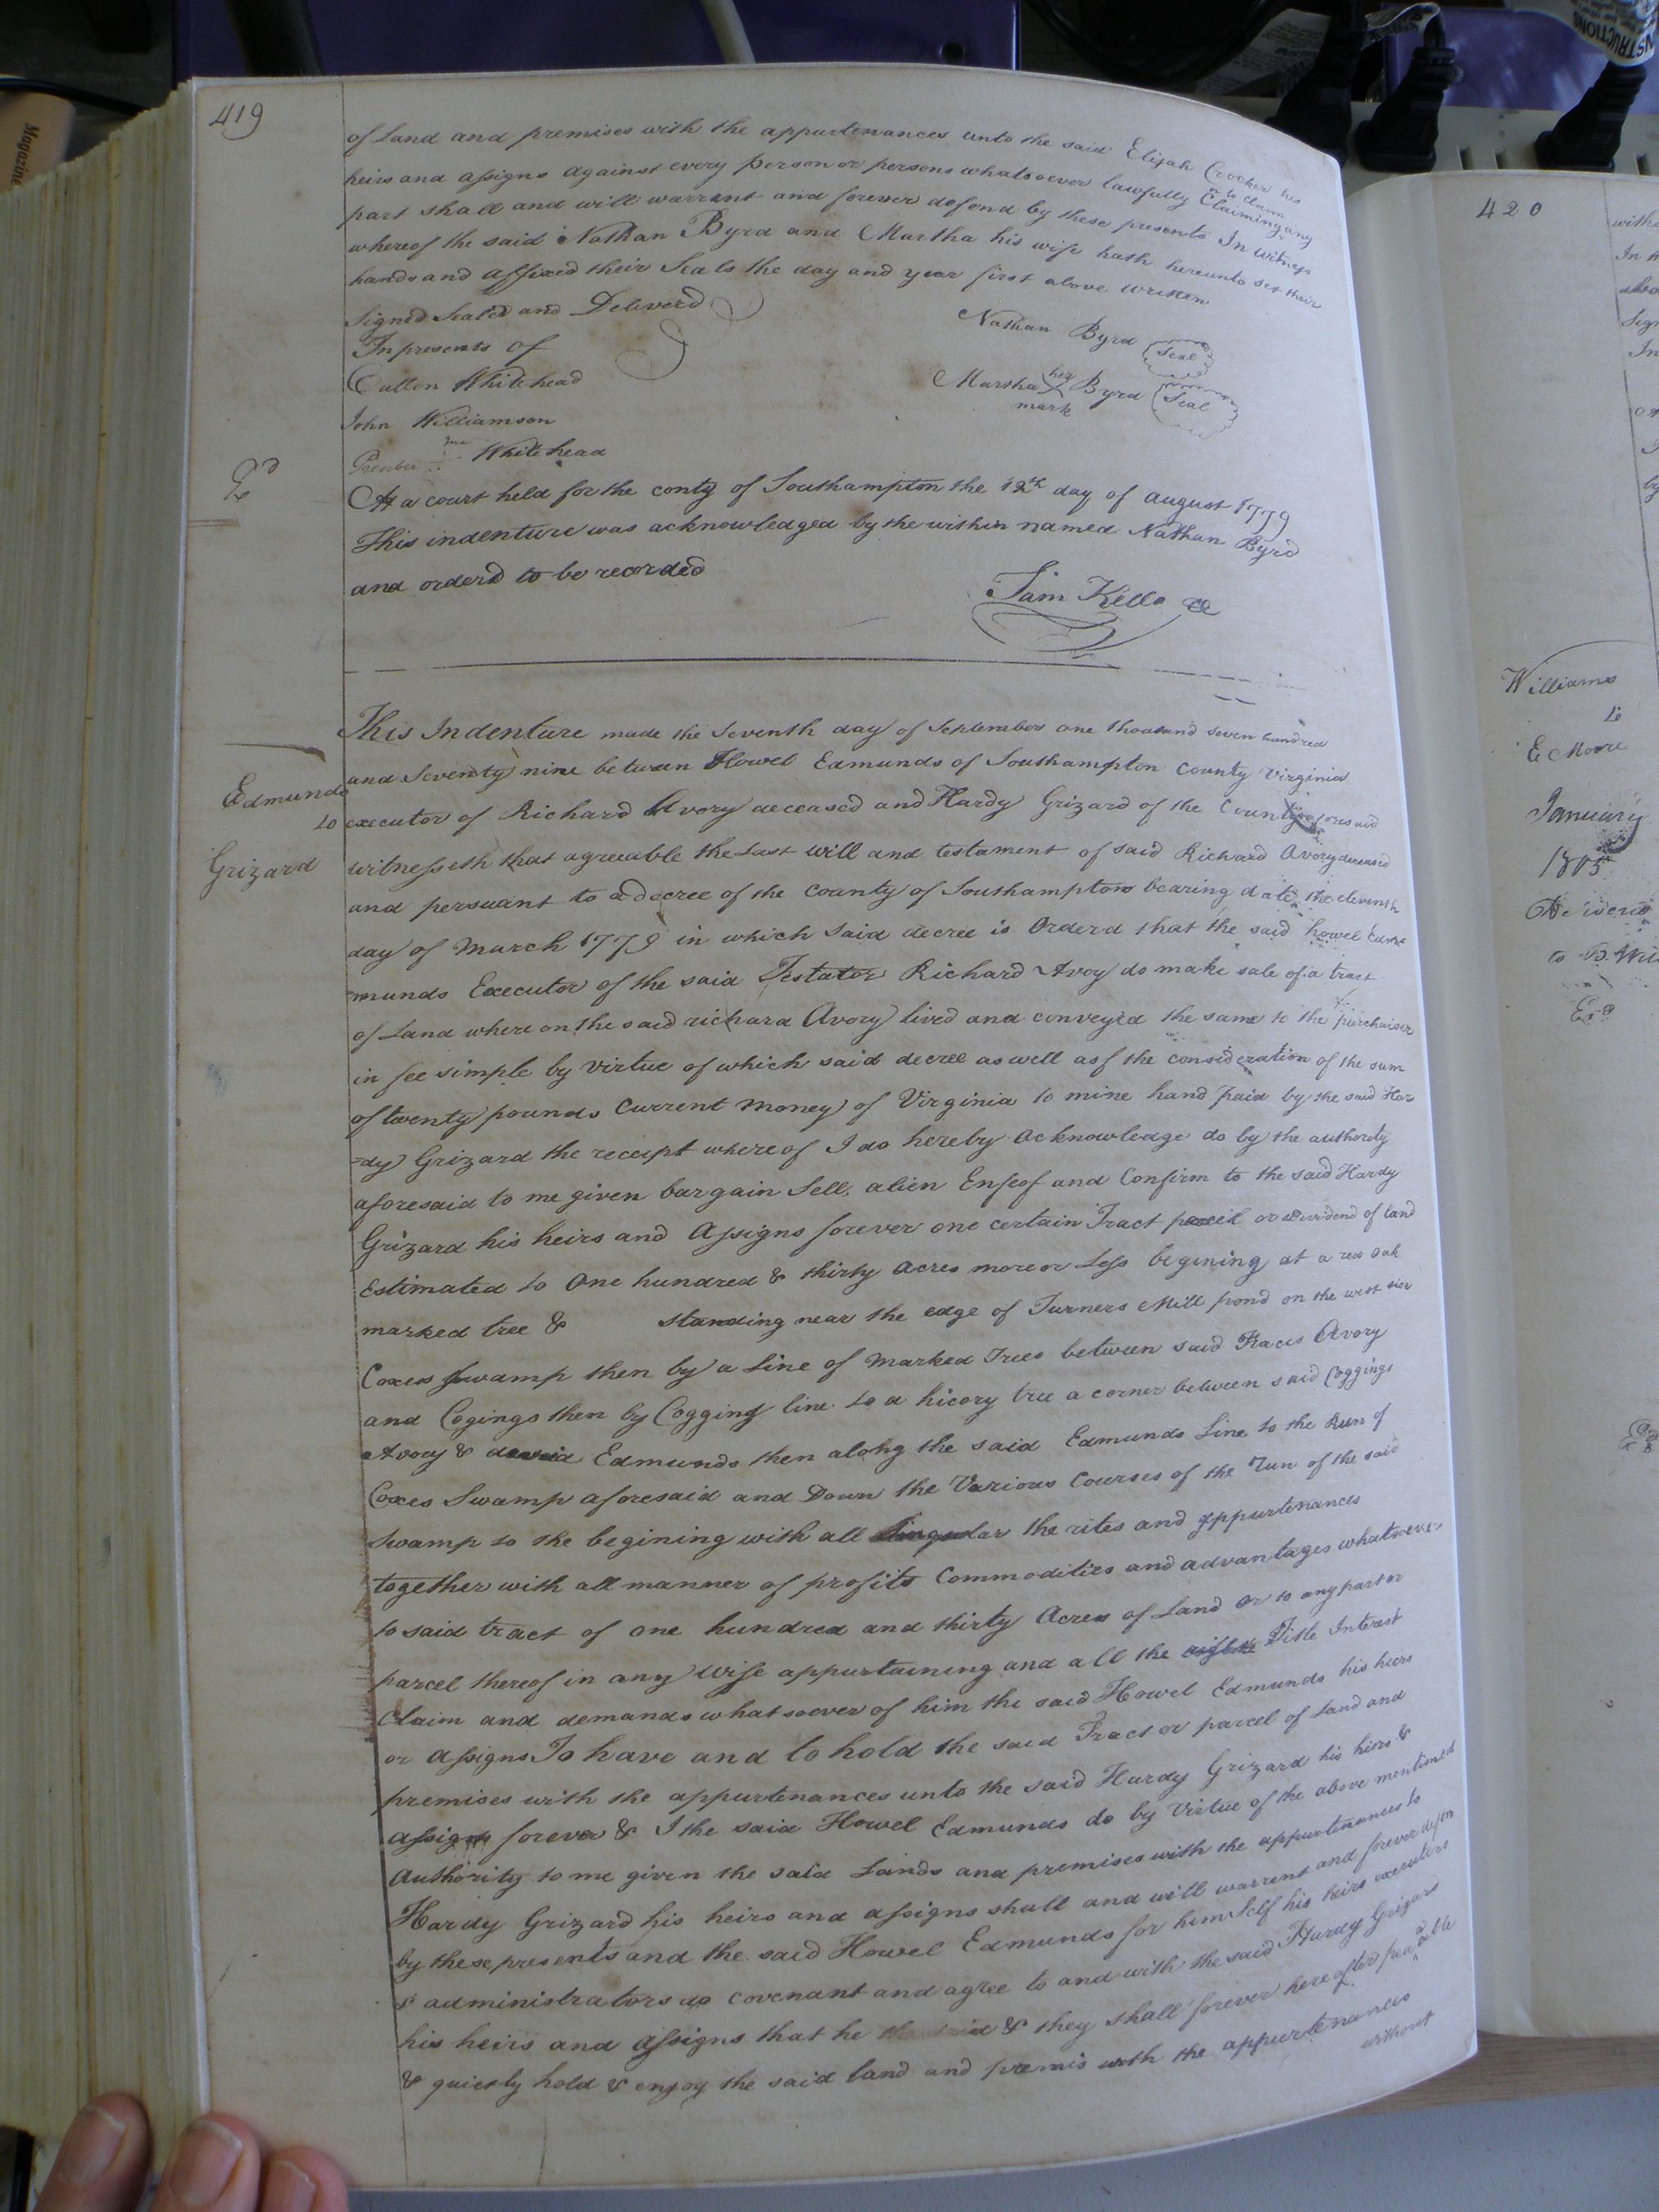 419
of Land and premises with the appurtenances unto the said Elijah Crocker his
heirs and assigns against every person or persons whatsoever lawfully Claiming or to Claim any
part shall and will warrant and forever defend by these presents In witness
whereof the said Nathan Byrd and Martha his wife hath hereunto set their
hands and affixed their Seals the day and year first above written
Signed Sealed and Deliverd
In presents of
Cullen Whitehead
John Williamson
Whitehead
Nathan Byrd Seal
Martha her Byrd Seal
mark
Ed
At a court held for the conty of Southampton the 12th day of august 1779
This indenture was acknowledged by the within named Nathan Byrd
and orderd to be recorded
Sam Kello CC
Edmunds
to
Grizard
This Indenture made the Seventh day of September one thousand seven hundred
and Seventy nine between Howel Edmunds of Southampton County Virginia
executor of Richard Avory deceased and Hardy Grizard of the County aforesaid
witnesseth that agreeable the Last will and testament of said Richard Avory deceased
and persuant to a decree of the County of Southampton bearing date the eleventh
day of March 1779 in which said decree is Orderd that the said howel Edm
=munds Executor of the said Testator Richard Avoy do make sale of a tract
of Land where on the said richard Avory lived and conveyed the same to the purchaiser
in fee simple by virtue of which said decree as well as f the consideration of the sum
of twenty pounds Current money of Virginia to mine hand paid by the said Har
=dy Grizard the receipt whereof I do hereby acknowledge do by the authority
aforesaid to me given bargain Sell, alien Enfeof and Confirm to the said Hardy
Grizard his heirs and Assigns forever one certain Tract parcil or dividend of land
Estimated to One hundred & thirty Acres more or Less begining at a red Oak
marked tree & standing near the edge of Turners Mill pond on the west side
Coxes Swamp then by a Line of Marked Trees between said Avory
and Cogings then by Cogging line to a hicory tree a corner between said Coggings
Avory & david Edmunds then along the said Edmunds Line to the Run of
Coxes Swamp aforesaid and Down the Various Courses of the run of the said
Swamp to the begining with all Singular the rites and appurtenances
together with all manner of profits Commodities and advantages whatsoever
to said tract of one hundred and thirty Acres of Land or to any part or
parcel thereof in any wise appurtaining and all the Title Interest
Claim and demands whatsoever of him the said Howel Edmunds his heirs
or assigns To have and to hold the said Tract or parcel of Land and
premises with the appurtenances unto the said Hardy Grizard his hiers &
assigns forever & I the said Howel Edmunds do by Virtue of the above mentioned
Authority to me given the said Lands and premises with the appurtenances to
Hardy Grizard his heirs and assigns shall and will warrent and forever defen
by these presents and the said Howel Edmunds for him Self his heirs executors
& administrators do covenant and agree to and with the said Hardy Grizard
his heirs and assigns that he & they shall forever here after peaceable
& quietly hold & enjoy the said land and premis with the appurtenances
without
420
Williams
to
E Moore
January
1805
to B. Wil
Ed